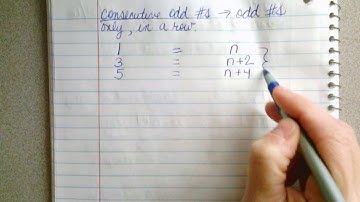 Consecutive odd #s → odd #s
only, in a row.
1 = n
3 = n+2
5 = n+4